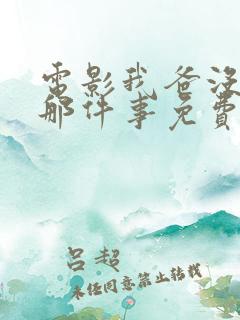 電影我爸没
那件事免費
呂超
未经同意禁止转载